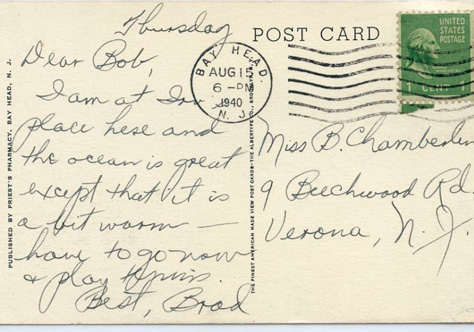 Thursday
Dear Bob,
I am at
place here and
the ocean is great
except that it is
a bit warm —
have to go now
& play tennis.
Best, Brad
POST CARD
BAY HEAD
AUG 15
6 - PM
1940
N. J.
UNITED
STATES
POSTAGE
1 CENT 1
Miss B. Chamberlin
9 Beechwood Rd
Verona, N. J.
PUBLISHED BY PRIEST'S PHARMACY, BAY HEAD, N. J.
THE FINEST AMERICAN MADE VIEW POST CARDS—THE ALBERTYPE CO.,